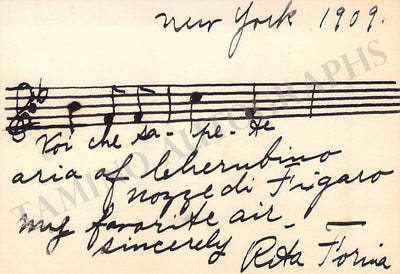 New York 1909.
Voi che sa - pe - te
aria of Cherubino
nozze di Figaro
my favorite air -
sincerely Rita Fornia
TAMINO AUTOGRAPHS